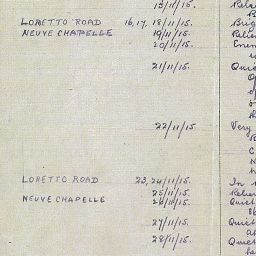 15/11/15. Rela
LORETTO ROAD 16, 17, 18/11/15.
NEUVE CHAPELLE 19/11/15. Relie
20/11/15. Enem
21/11/15. Quie
22/11/15. Very
LORETTO ROAD 23, 24/11/15. In
25/11/15. Relie
NEUVE CHAPELLE 26/11/15. Quiet
27/11/15. Quiet
28/11/15. Quiet